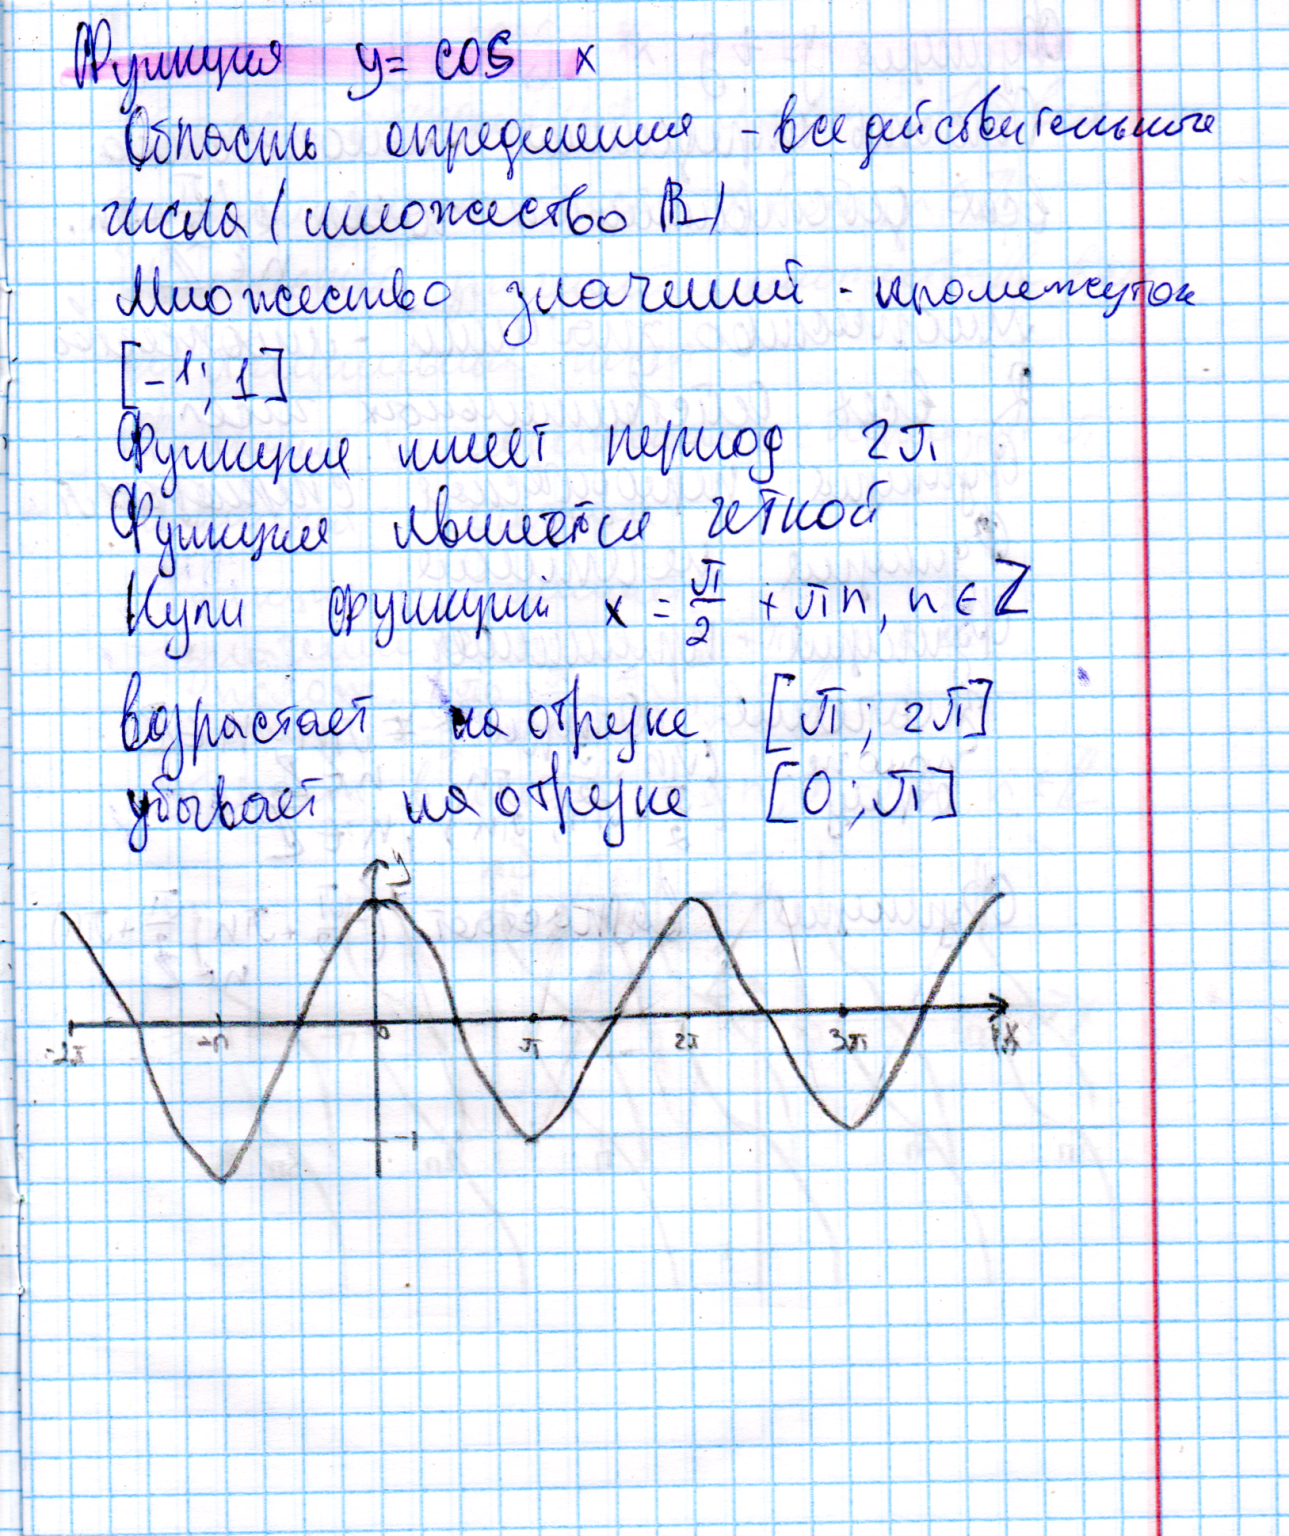 Функция y = cos x
Область определения - все действительные
числа (множество R)
Множество значений - промежуток
[-1; 1]
Функция имеет период 2π
Функция является четной
Нули функции x = π/2 + πn, n ∈ Z
возрастает на отрезке [π; 2π]
убывает на отрезке [0; π]
y
-2π -π 0 π 2π 3π
-1